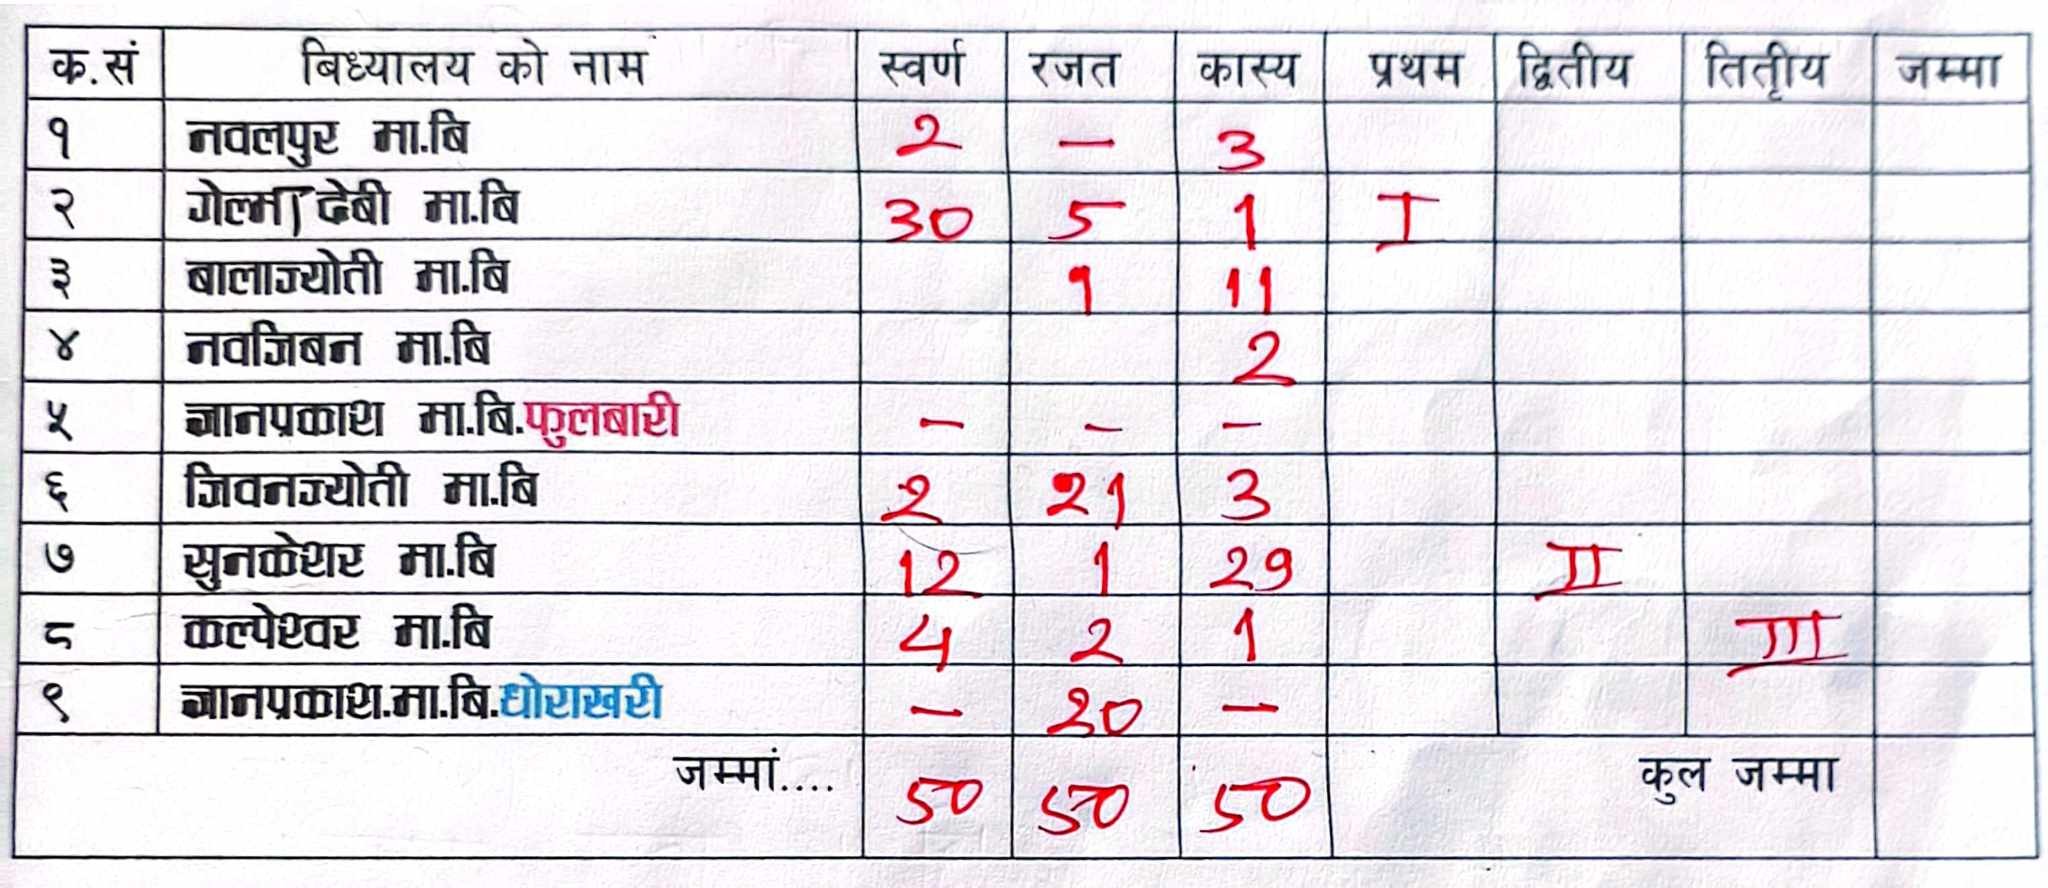 क.सं बिध्यालय को नाम स्वर्ण रजत कास्य प्रथम द्वितीय तितृीय जम्मा
१ नवलपुर मा.बि 2 – 3
२ गेल्मा देबी मा.बि 30 5 1 I
३ बालाज्योती मा.बि 1 11
४ नवजिबन मा.बि 2
५ ज्ञानप्रकाश मा.बि.फुलबारी – – –
६ जिवनज्योती मा.बि 2 21 3
७ सुनकेशर मा.बि 12 1 29 II
८ कल्पेश्वर मा.बि 4 2 1 III
९ ज्ञानप्रकाश.मा.बि.धोराखरी – 20 –
जम्मां.... 50 50 50 कुल जम्मा